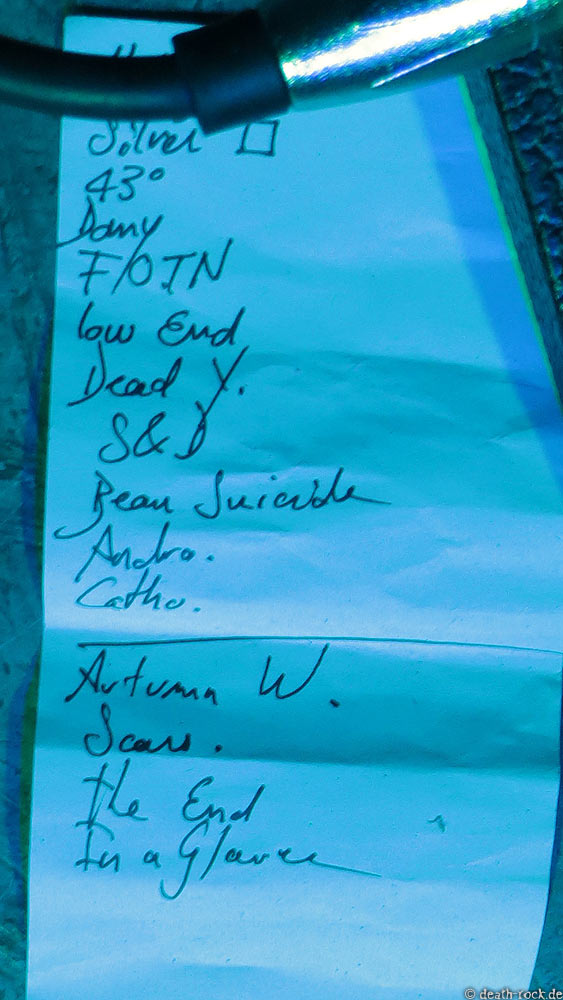 Silver □
43°
Dany
F/OTN
low End
Dead Y.
S&D
Beau Suicide
Andro.
Catho.
Autumn W.
Scars.
The End
In a Glance
© death-rock.de